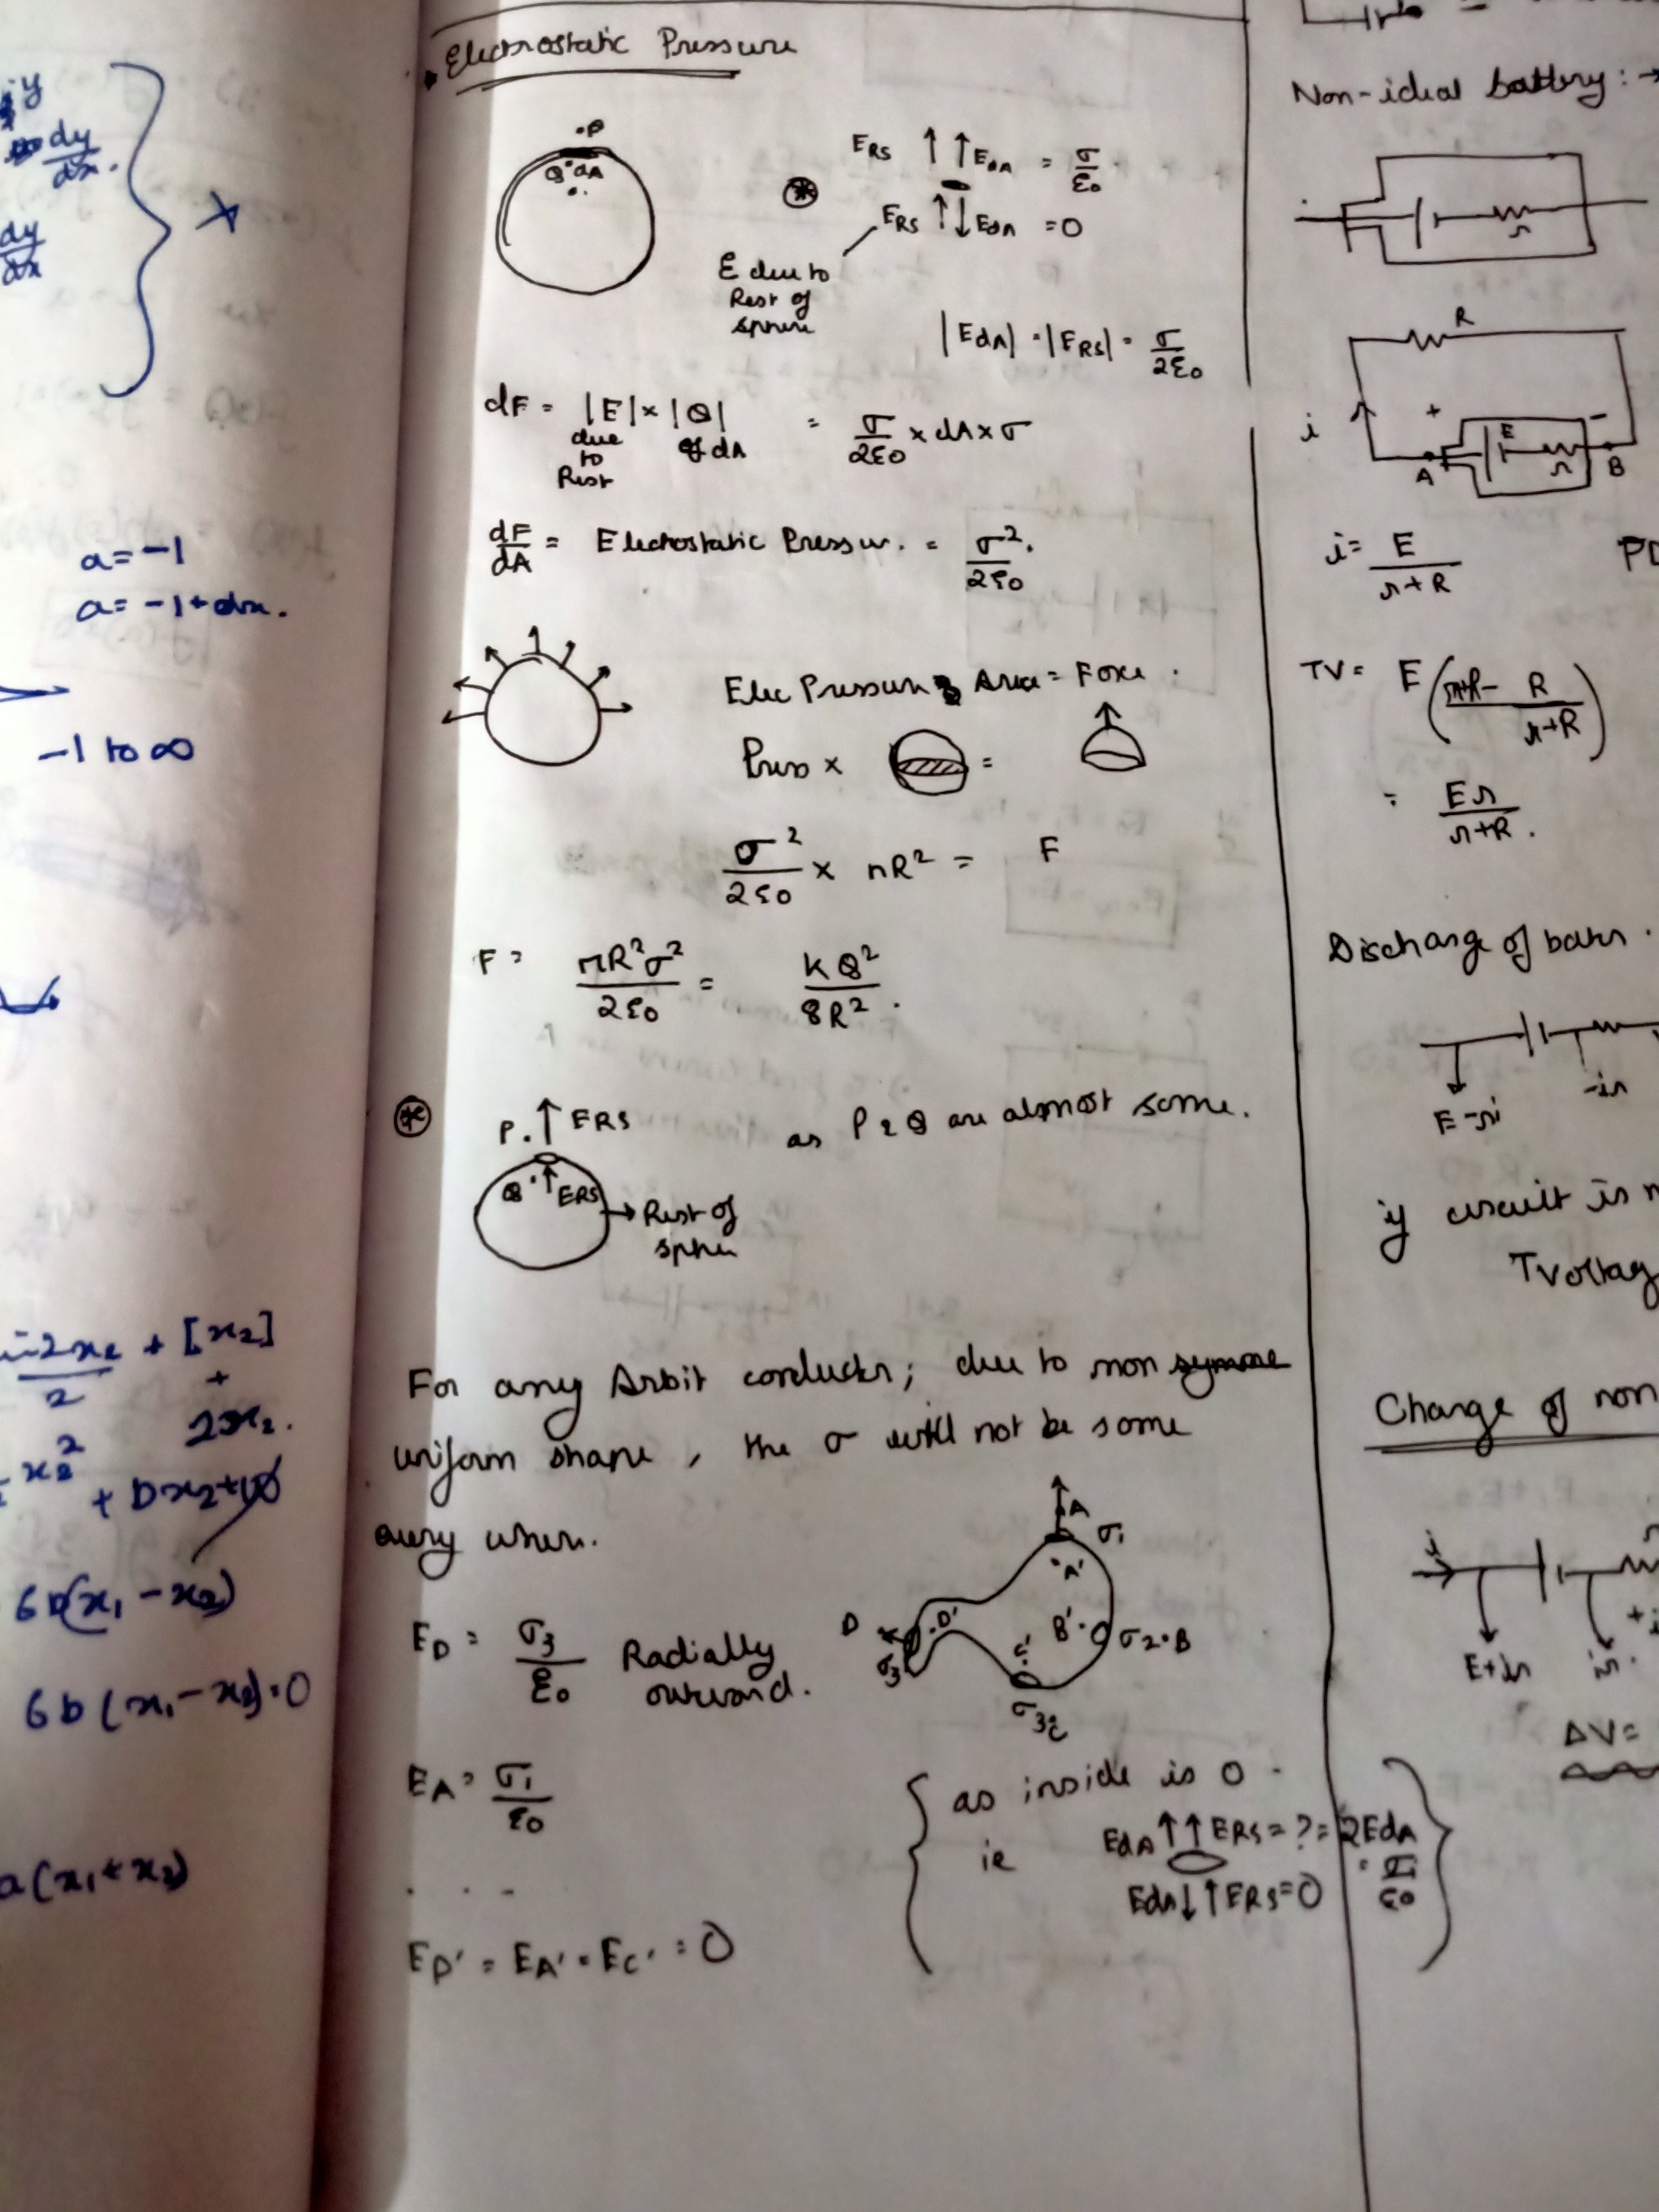 iy
dy/dx.
dy/dx
a = -1
a = -1 + dx.
-1 to ∞
-2x₂/2 + [x₂]
+
2x₂.
x₂²
+ bx₂ +
6b(x₁ - x₂)
6b(x₁ - x₂) = 0
a(x₁ + x₂)
Electrostatic Pressure
.P
Q dA
E_RS ↑ ↑ E_dA = σ/ε₀
E_RS ↑ ↓ E_dA = 0
E due to
Rest of
sphere
|E_dA| = |E_RS| = σ/2ε₀
dF = |E| × |Q| = σ/2ε₀ × dA × σ
due of dA
to
Rest
dF/dA = Electrostatic Pressur. = σ²/2ε₀.
Elec Pressure Area = Force.
Press × =
σ²/2ε₀ × πR² = F
F = πR²σ²/2ε₀ = KQ²/8R².
P. ↑ ERS as P & Q are almost same.
Q ↑ ERS
→ Rest of
sphere
For any Arbit conductor; due to non
uniform shape, the σ will not be same
every where.
A σ₁
A'
D D' B' σ₂ .B
σ₃ C'
σ₃ C
E_D = σ₃/ε₀ Radially
outward.
E_A = σ₁/ε₀
. . .
E_D' = E_A' = E_C' = 0
as inside is 0.
ie EdA ↑↑ ERS = ? = 2EdA
= σ₁/ε₀
EdA ↓ ↑ ERS = 0
Non-ideal battery: →
r
R
i + -
E
A r B
i = E/(r+R) PD
TV = E( R/(r+R))
= Er/(r+R).
Discharge of
E -ri -ir
if circuit is
TVoltag
Change of non
i
E+ir ir.
ΔV =